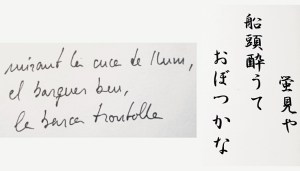 mirant la cuca de llum,
el barquer beu,
la barca trontolla
蛍見や
船頭酔うて
おぼつかな